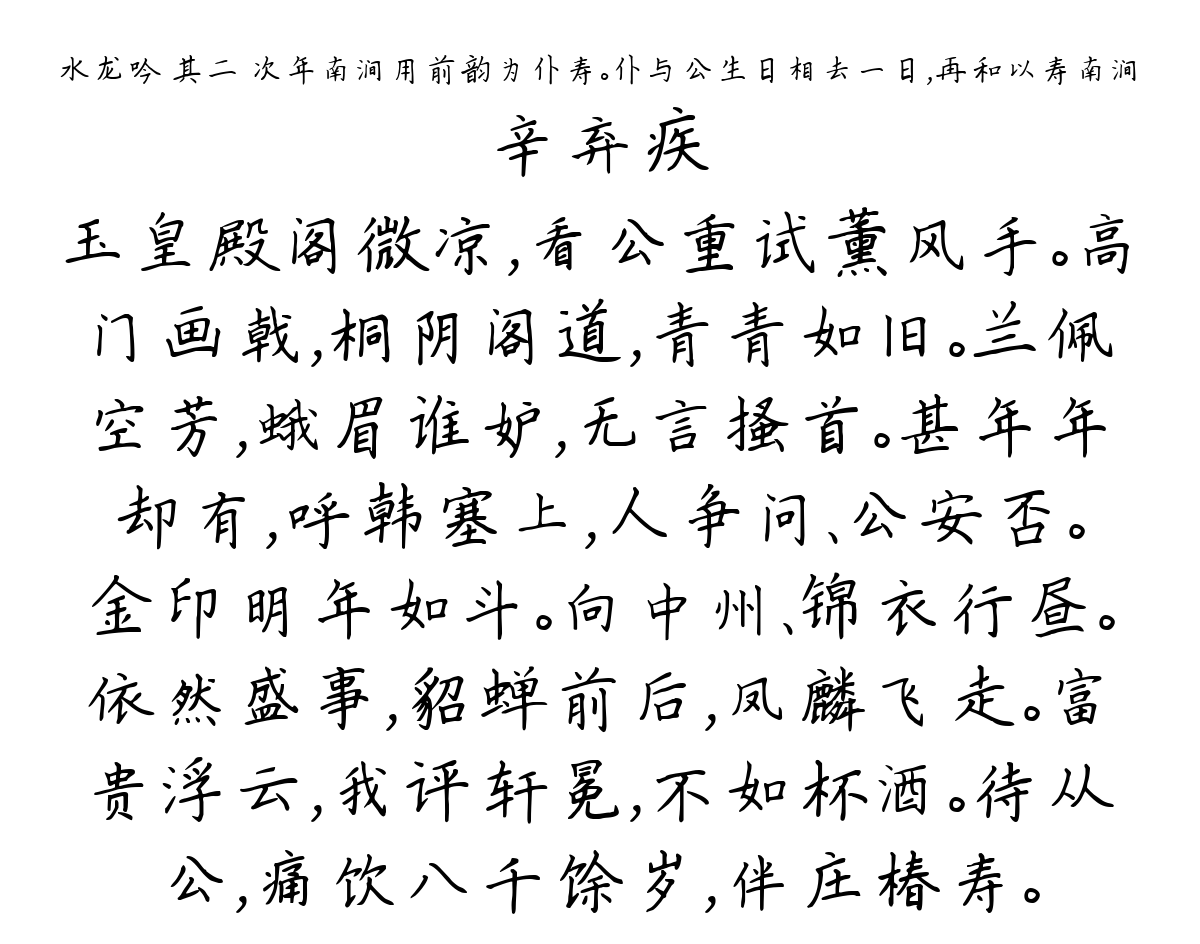 水龙吟 其二 次年南涧用前韵为仆寿。仆与公生日相去一日,再和以寿南涧
辛弃疾
玉皇殿阁微凉,看公重试薰风手。高
门画戟,桐阴阁道,青青如旧。兰佩
空芳,蛾眉谁妒,无言搔首。甚年年
却有,呼韩塞上,人争问、公安否。
金印明年如斗。向中州、锦衣行昼。
依然盛事,貂蝉前后,凤麟飞走。富
贵浮云,我评轩冕,不如杯酒。待从
公,痛饮八千馀岁,伴庄椿寿。